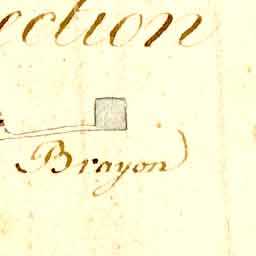 ection
Brayon